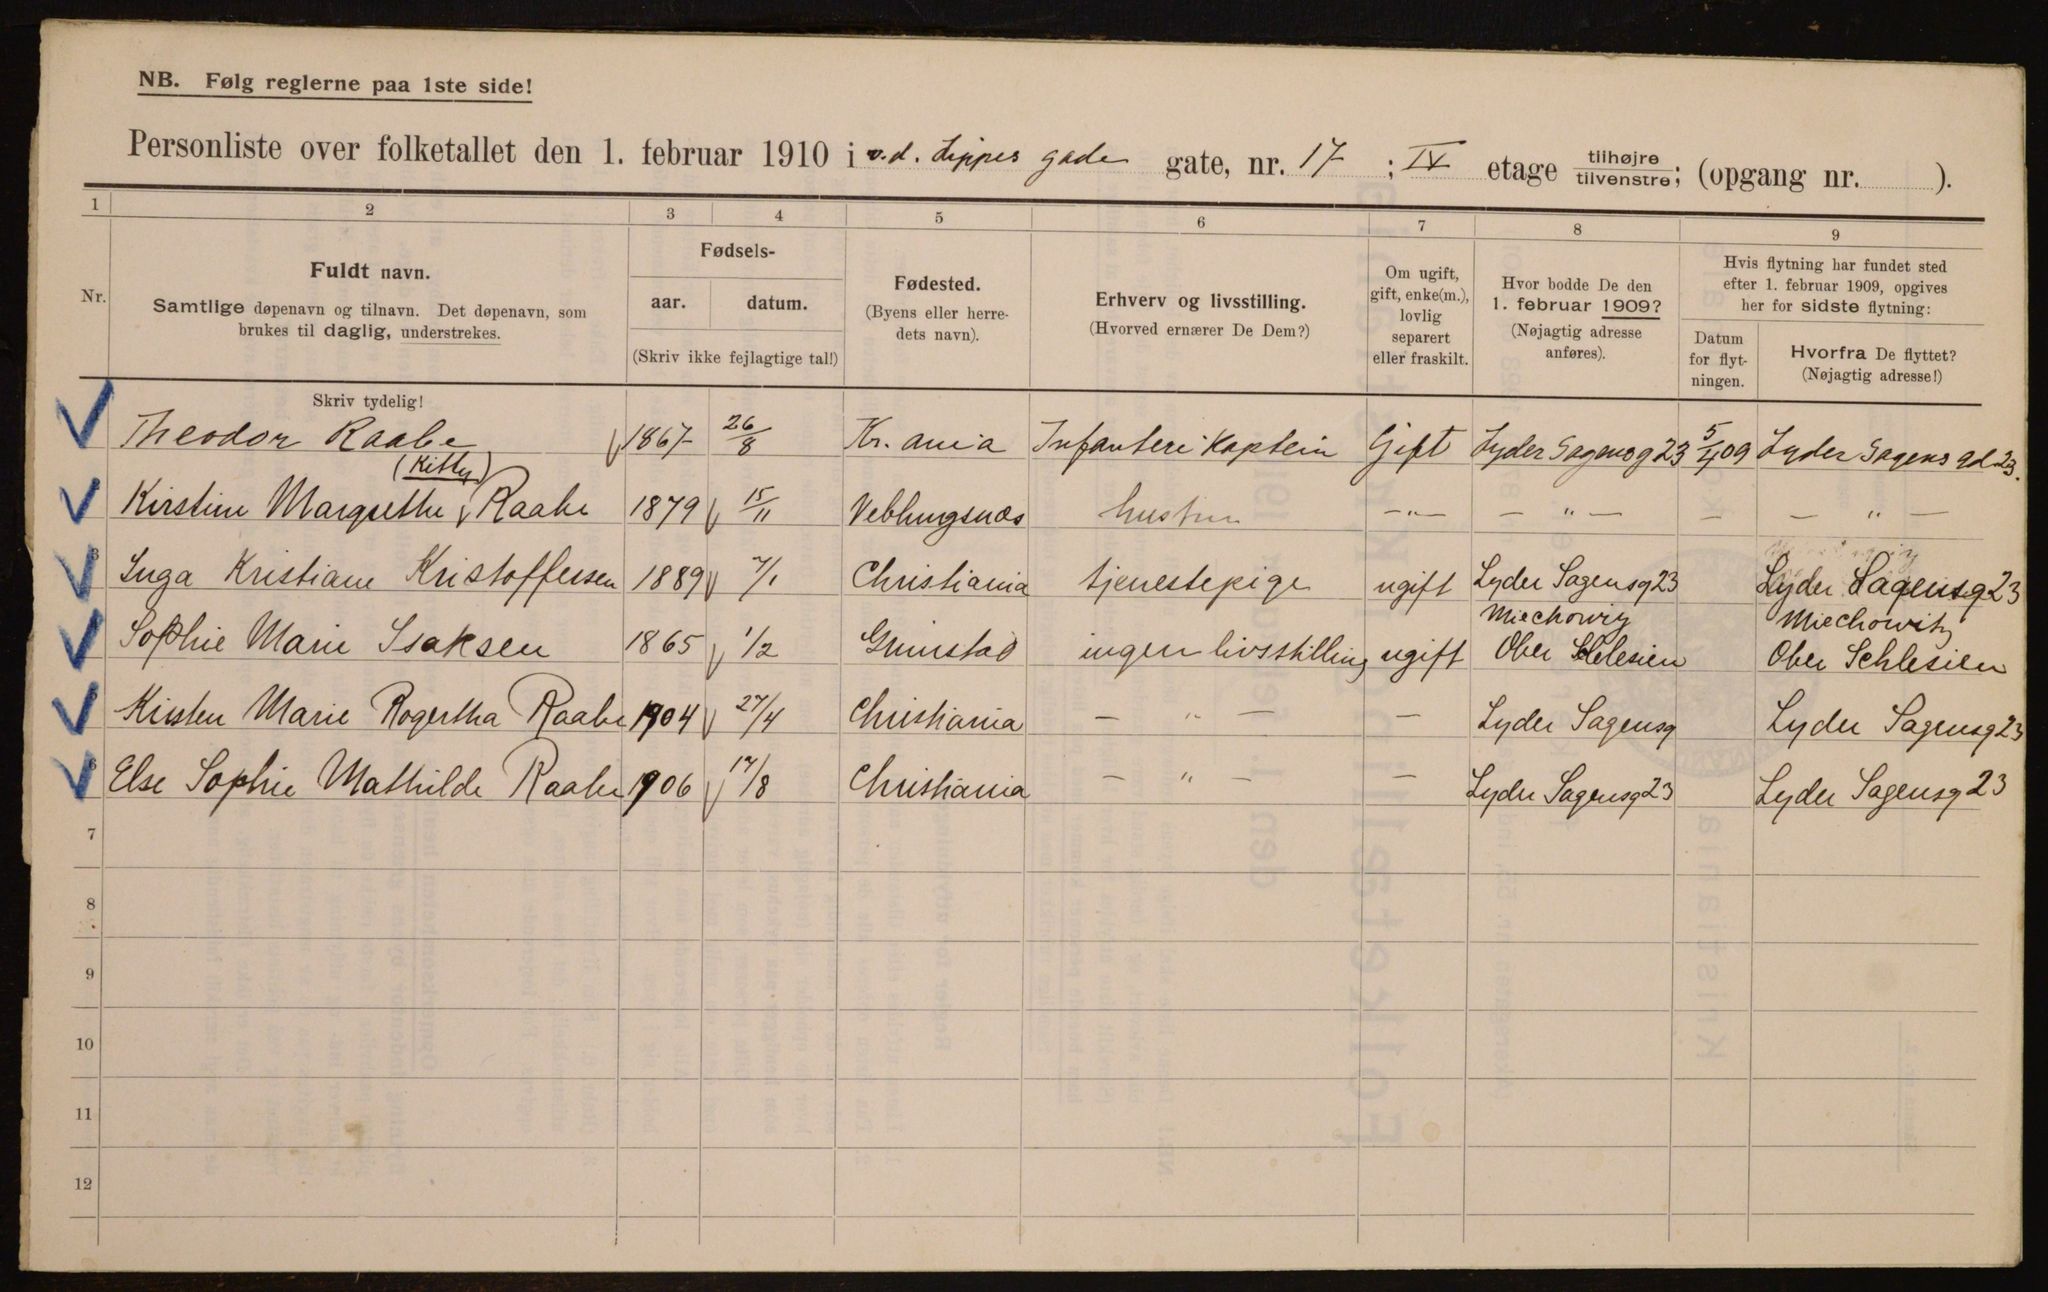 NB. Følg reglerne paa 1ste side!
Personliste over folketallet den 1. februar 1910 i v.d. Lippes gade gate, nr. 17 ; IV etage tilhøjre/tilvenstre; (opgang nr. ).
1 2 3 4 5 6 7 8 9
Nr.
Fuldt navn.
Samtlige døpenavn og tilnavn. Det døpenavn, som
brukes til daglig, understrekes.
Skriv tydelig!
Fødsels-
aar. datum.
(Skriv ikke fejlagtige tal!)
Fødested.
(Byens eller herre-
dets navn).
Erhverv og livsstilling.
(Hvorved ernærer De Dem?)
Om ugift,
gift, enke(m.),
lovlig
separert
eller fraskilt.
Hvor bodde De den
1. februar 1909?
(Nøjagtig adresse
anføres).
Hvis flytning har fundet sted
efter 1. februar 1909, opgives
her for sidste flytning:
Datum
for flyt-
ningen.
Hvorfra De flyttet?
(Nøjagtig adresse!)
Theodor Raabe 1867 26/8 Kr.ania Infanteri Kaptein Gift Lyder Sagensg 23 5/4 09 Lyder Sagens gd 23.
(Kitty)
Kirstine Margrethe Raabe 1879 15/11 Veblungsnæs hustru — " — — " — — — " —
3 Inga Kristiane Kristoffersen 1889 7/1 Christiania tjenestepige ugift Lyder Sagensg 23 Lyder Sagensg 23
Miechowiz Miechowitz
Sophie Marie Isaksen 1865 1/2 Grimstad ingen livsstilling ugift Ober Schlesien Ober Schlesien
Kirsten Marie Rogertha Raabe 1904 27/4 Christiania — " — — Lyder Sagensg Lyder Sagensg 23
6 Else Sophie Mathilde Raabe 1906 17/8 Christiania — " — — Lyder Sagensg 23 Lyder Sagensg 23
7
8
9
10
11
12